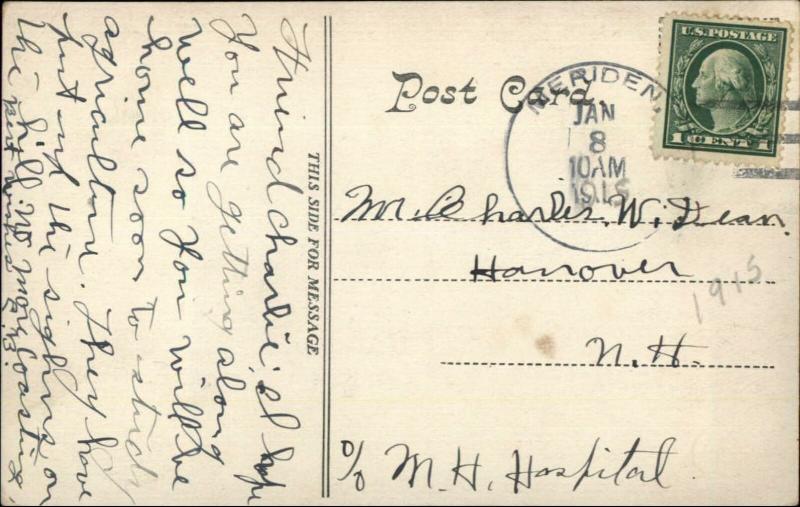 Friend Charlie, I hope
You are getting along
well so You will be
home soon to study
agriculture. They have
put up the sighns on
the hill "No more Coasting
best wishes
THIS SIDE FOR MESSAGE
Post Card
U.S. POSTAGE
1 CENT 1
MERIDEN,
JAN
8
10AM
1915
Mr. Charles, W. Dean.
Hanover
1915
N. H.
c/o M. H. Hospital.